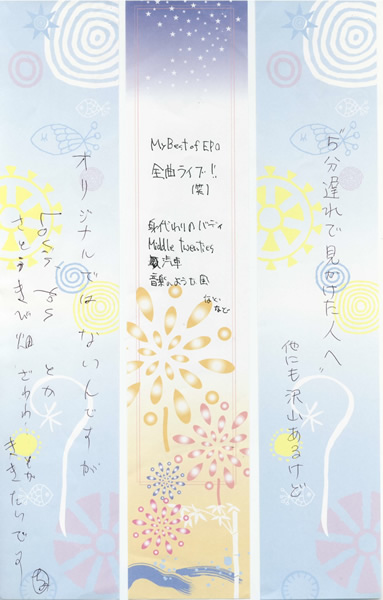 "5分遅れで見かけた人へ"
他にも沢山あるけど
My Best of EPO
全曲ライブ!!
(笑)
身代わりのバディ
Middle twenties
汽車
音楽のような風
などなど
オリジナルではないんですが
とか
さとうきび畑 ざわわ とか
ききたいです